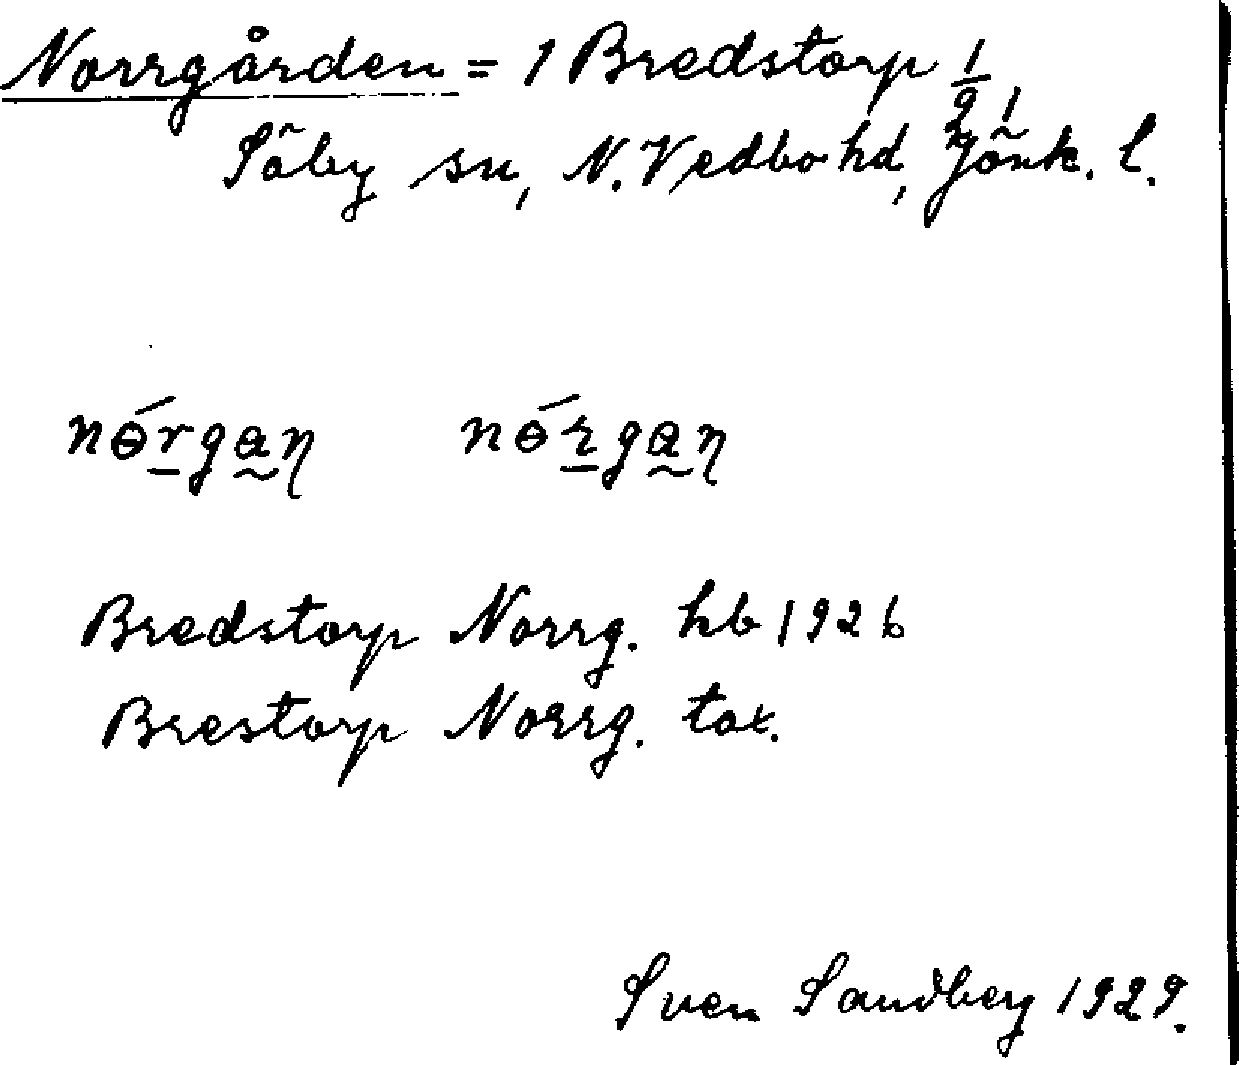 Norrgården = 1 Bredstorp 1/2,
Säby sn, N. Vedbo hd, Jönk. l.
nɵ́rgan̡ nɵ́rgan̡
Bredstorp Norrg. hb 1926
Brestorp Norrg. tax.
Sven Sandberg 1929.